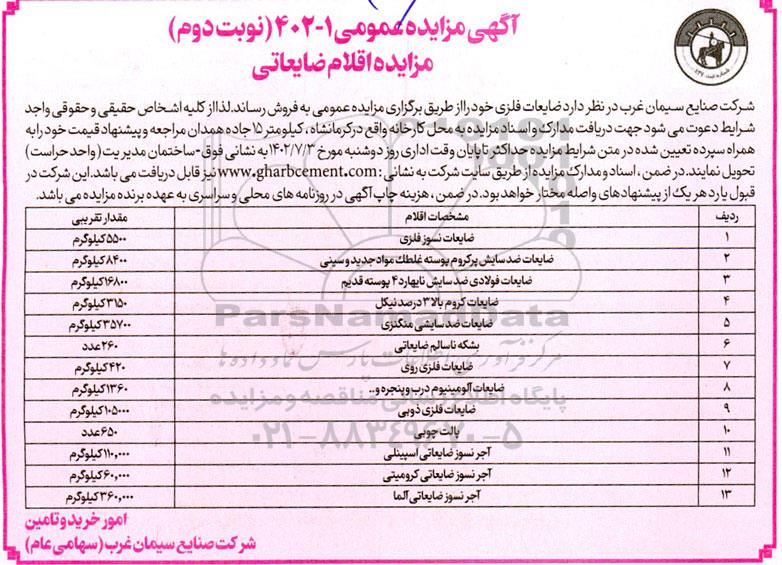 آگهی مزایده عمومی ۱-۴۰۲ (نوبت دوم)
مزایده اقلام ضایعاتی
شرکت صنایع سیمان غرب در نظر دارد ضایعات فلزی خود را از طریق برگزاری مزایده عمومی به فروش رساند. لذا از کلیه اشخاص حقیقی و حقوقی واجد
شرایط دعوت می شود جهت دریافت مدارک و اسناد مزایده به محل کارخانه واقع در کرمانشاه، کیلومتر ۱۵ جاده همدان مراجعه و پیشنهاد قیمت خود را به
همراه سپرده تعیین شده در متن شرایط مزایده حداکثر تا پایان وقت اداری روز دوشنبه مورخ ۱۴۰۲/۷/۳ به نشانی فوق-ساختمان مدیریت (واحد حراست)
تحویل نمایند. در ضمن، اسناد و مدارک مزایده از طریق سایت شرکت به نشانی: www.gharbcement.com نیز قابل دریافت می باشد. این شرکت در
قبول یا رد هر یک از پیشنهادهای واصله مختار خواهد بود. در ضمن، هزینه چاپ آگهی در روزنامه های محلی و سراسری به عهده برنده مزایده می باشد.
ردیف مشخصات اقلام مقدار تقریبی
۱ ضایعات نسوز فلزی ۵۵۰۰ کیلوگرم
۲ ضایعات ضد سایش پرکروم پوسته غلطک مواد جدید و سینی ۸۴۰۰ کیلوگرم
۳ ضایعات فولادی ضد سایش نایهارد ۴ پوسته قدیم ۱۶۸۰۰ کیلوگرم
۴ ضایعات کروم بالا ۳ درصد نیکل ۳۱۵۰ کیلوگرم
۵ ضایعات ضد سایشی منگنزی ۳۵۷۰۰ کیلوگرم
۶ بشکه ناسالم ضایعاتی ۲۶۰ عدد
۷ ضایعات فلزی روی ۴۲۰ کیلوگرم
۸ ضایعات آلومینیوم درب و پنجره و.. ۱۳۶۰ کیلوگرم
۹ ضایعات فلزی ذوبی ۱۰۵۰۰۰ کیلوگرم
۱۰ پالت چوبی ۶۵۰ عدد
۱۱ آجر نسوز ضایعاتی اسپینلی ۱۱۰,۰۰۰ کیلوگرم
۱۲ آجر نسوز ضایعاتی کرومیتی ۶۰,۰۰۰ کیلوگرم
۱۳ آجر نسوز ضایعاتی آلما ۳۶۰,۰۰۰ کیلوگرم
امور خرید و تامین
شرکت صنایع سیمان غرب (سهامی عام)
ParsNamadData
مرکز فرآوری اطلاعات پارس نماد داده ها
پایگاه اطلاع رسانی مناقصه و مزایده
۰۲۱-۸۸۳۴۹۶۷۰-۵